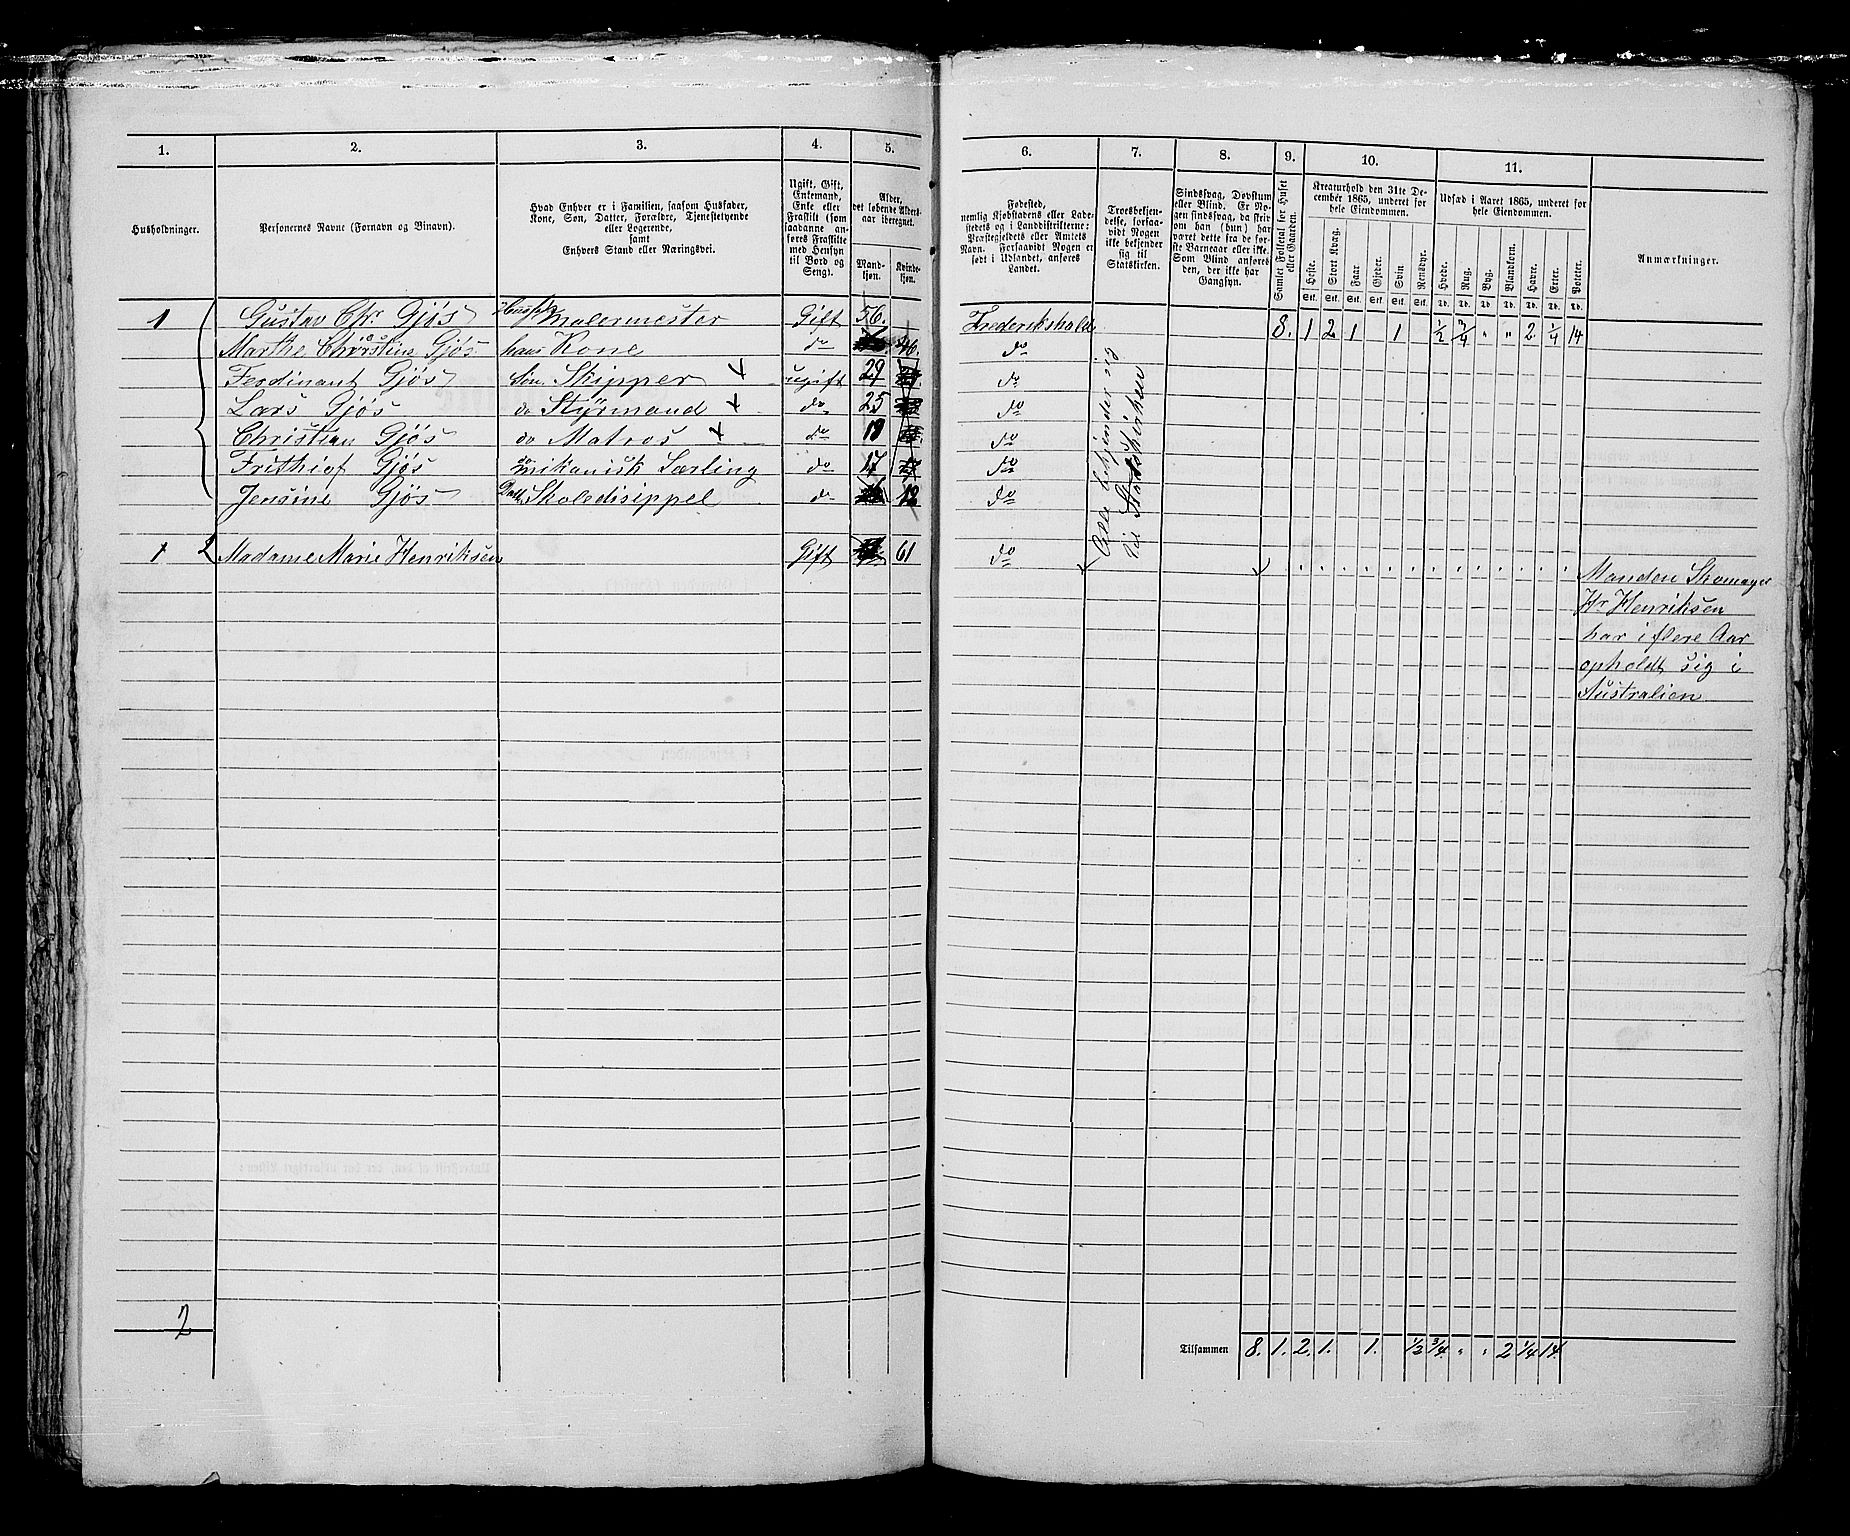 1. 2. 3. 4. 5. 6. 7. 8. 9. 10. 11.
Husholdninger.
Personernes Navne (Fornavn og Binavn).
Hvad Enhver er i Familien, saasom Husfader,
Kone, Søn, Datter, Forældre, Tjenestetyende
eller Logerende,
samt
Enhvers Stand eller Næringsvei.
Ugift, Gift,
Enkemand,
Enke eller
Fraskilt (som
saadanne an-
føres Fraskilte
med Hensyn
til Bord og
Seng).
Alder,
det løbende Alders-
aar iberegnet.
Mand-
kjøn.
Kvinde-
kjøn.
Fødested,
nemlig Kjøbstadens eller Lade-
stedets og i Landdistrikterne:
Præstegjeldets eller Amtets
Navn. Forsaavidt Nogen er
født i Udlandet, anføres
Landet.
Troesbekjen-
delse, forsaa-
vidt Nogen
ikke bekjender
sig
til
Statskirken.
Sindssvag, Døvstum
eller Blind. Er No-
gen sindssvag, da skriv
om han (hun) har
været dette fra de før-
ste Barneaar eller ikke.
Som Blind anføres
den, der ikke har
Gangsyn.
Samlet Folketal for Huset
eller Gaarden.
Kreaturhold den 31te De-
cember 1865, underet for
hele Eiendommen.
Heste. Stort Kvæg. Faar Gjeder. Svin Rensdyr.
Stk. Stk. Stk. Stk. Stk. Stk.
Udsæd i Aaret 1865, underet for
hele Eiendommen.
Hvede. Rug. Byg. Blandkorn. Havre. Erter. Poteter.
Td. Td. Td. Td. Td. Td. Td.
Anmærkninger.
1 Gustav Chr. Gjøs Husf. Malermester Gift 56. Frederikshald 8. 1 2 1 1 1/2 3/4 " " 2 1/4 14
Marthe Gjøs hans Kone do 46. do
Ferdinant Gjøs Søn Skipper ugift 29 do
Lars Gjøs do Styrmand do 25 do
Christian Gjøs do Matros do 18 do
Frithiof Gjøs do mikanisk Lærling do 17 do
Jensine Gjøs Datt. Skoledisippel do 12 do
Alle bekjender sig
til Statskirken
1 2 Madame Marie Henriksen Gift 61 do
Manden Skomager
Hr Henriksen
har i flere Aar
opholdt sig i
Australien
2
Tilsammen 8. 1. 2. 1. 1. 1/2 3/4 " " 2 1/4 14.